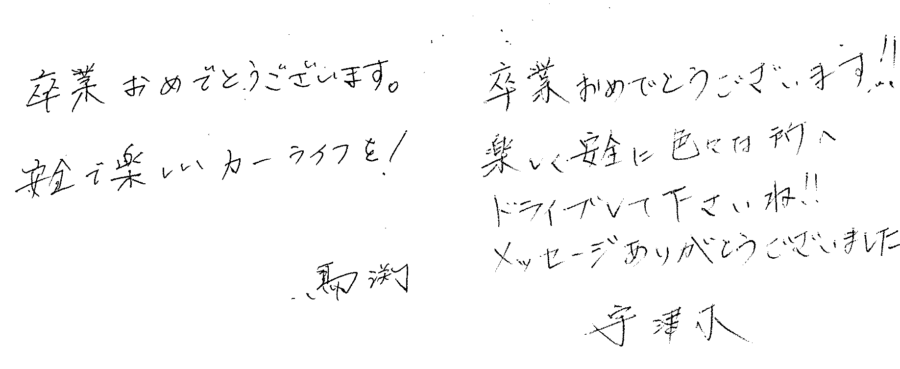 卒業おめでとうございます。
安全で楽しいカーライフを!
馬渕
卒業おめでとうございます!!
楽しく安全に色々な所へ
ドライブして下さいね!!
メッセージありがとうございました
宇津木